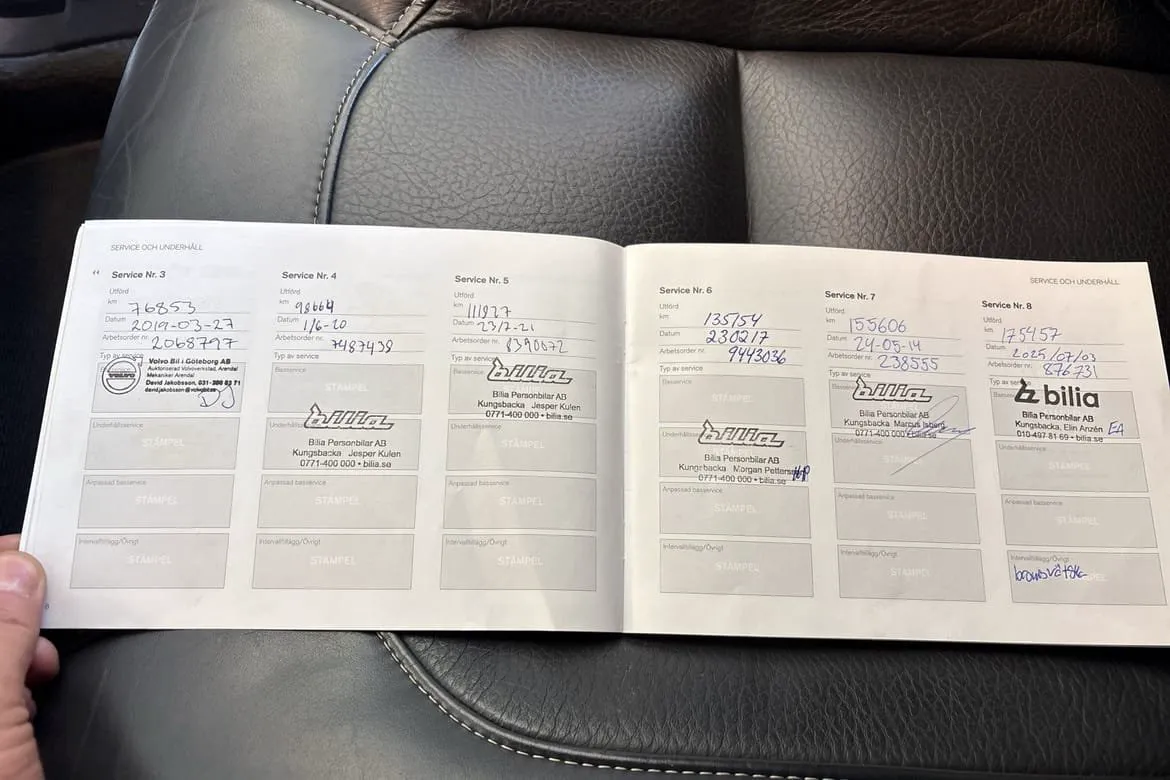 SERVICE OCH UNDERHÅLL
Service Nr. 3
Utförd
km 76853
Datum 2019-03-27
Arbetsorder nr. 2068797
Typ av service
VOLVO
Volvo Bil i Göteborg AB
Auktoriserad Volvoverkstad, Arendal
Mekaniker Arendal
David Jakobsson, 031-
david.jakobsson@volvobil.se
DJ
STÄMPEL
Anpassad basservice
STÄMPEL
Intervalltillägg/Övrigt
STÄMPEL
Service Nr. 4
Utförd
km 98664
Datum 1/6-20
Arbetsorder nr. 7487438
Typ av service
Basservice
STÄMPEL
Underhållsservice
bilia
Bilia Personbilar AB
Kungsbacka Jesper Kulen
0771-400 000 • bilia.se
Anpassad basservice
STÄMPEL
Intervalltillägg/Övrigt
STÄMPEL
Service Nr. 5
Utförd
km 111827
Datum 23/7-21
Arbetsorder nr. 8390072
Typ av service
Basservice
bilia
Bilia Personbilar AB
Kungsbacka Jesper Kulen
0771-400 000 • bilia.se
Underhållsservice
STÄMPEL
Anpassad basservice
STÄMPEL
Intervalltillägg/Övrigt
STÄMPEL
Service Nr. 6
Utförd
km 135154
Datum 230217
Arbetsorder nr. 9443036
Typ av service
Basservice
STÄMPEL
bilia
Bilia Personbilar AB
Kungsbacka Morgan Pettersson
0771-400 000 • bilia.se
Anpassad basservice
STÄMPEL
Intervalltillägg/Övrigt
STÄMPEL
Service Nr. 7
Utförd
km 155606
Datum 24-05-14
Arbetsorder nr. 238555
Typ av service
bilia
Bilia Personbilar AB
Kungsbacka Marcus Isberg
0771-400 000 • bilia.se
Underhållsservice
STÄMPEL
Anpassad basservice
STÄMPEL
Intervalltillägg/Övrigt
STÄMPEL
SERVICE OCH UNDERHÅLL
Service Nr. 8
Utförd
km 175457
Datum 2025/07/03
Arbetsorder nr. 876731
Typ av service
bilia
Bilia Personbilar AB
Kungsbacka, Elin Anzén EA
010-497 81 69 • bilia.se
Underhållsservice
STÄMPEL
Anpassad basservice
STÄMPEL
Intervalltillägg/Övrigt
bromsvätska